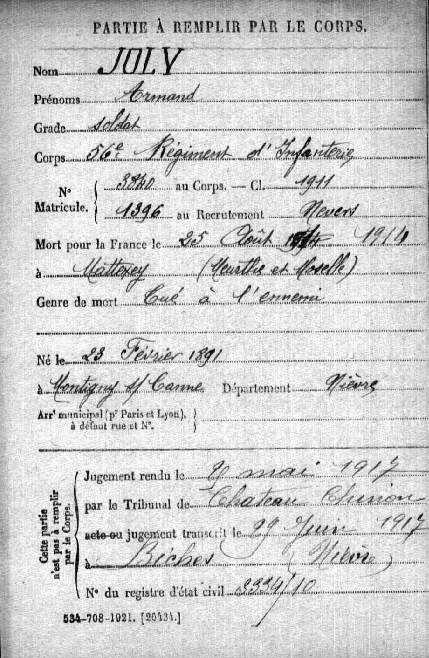 PARTIE À REMPLIR PAR LE CORPS.
Nom JOLY
Prénoms Armand
Grade soldat
Corps 56e Régiment d'Infanterie
N° Matricule. { 3840 au Corps. — Cl. 1911
1396 au Recrutement Nevers
Mort pour la France le 25 Août 1914
à Mattexey (Meurthe et Moselle)
Genre de mort Tué à l'ennemi
Né le 23 Février 1891
à Montigny s/ Canne Département Nièvre
Arrt municipal (pr Paris et Lyon), }
à défaut rue et N°.
Cette partie n'est pas à remplir par le Corps.
Jugement rendu le 9 mai 1917
par le Tribunal de Chateau Chinon
acte ou jugement transcrit le 29 Juin 1917
à Biches (Nièvre)
N° du registre d'état civil 2334/10
534-708-1921. [26434.]